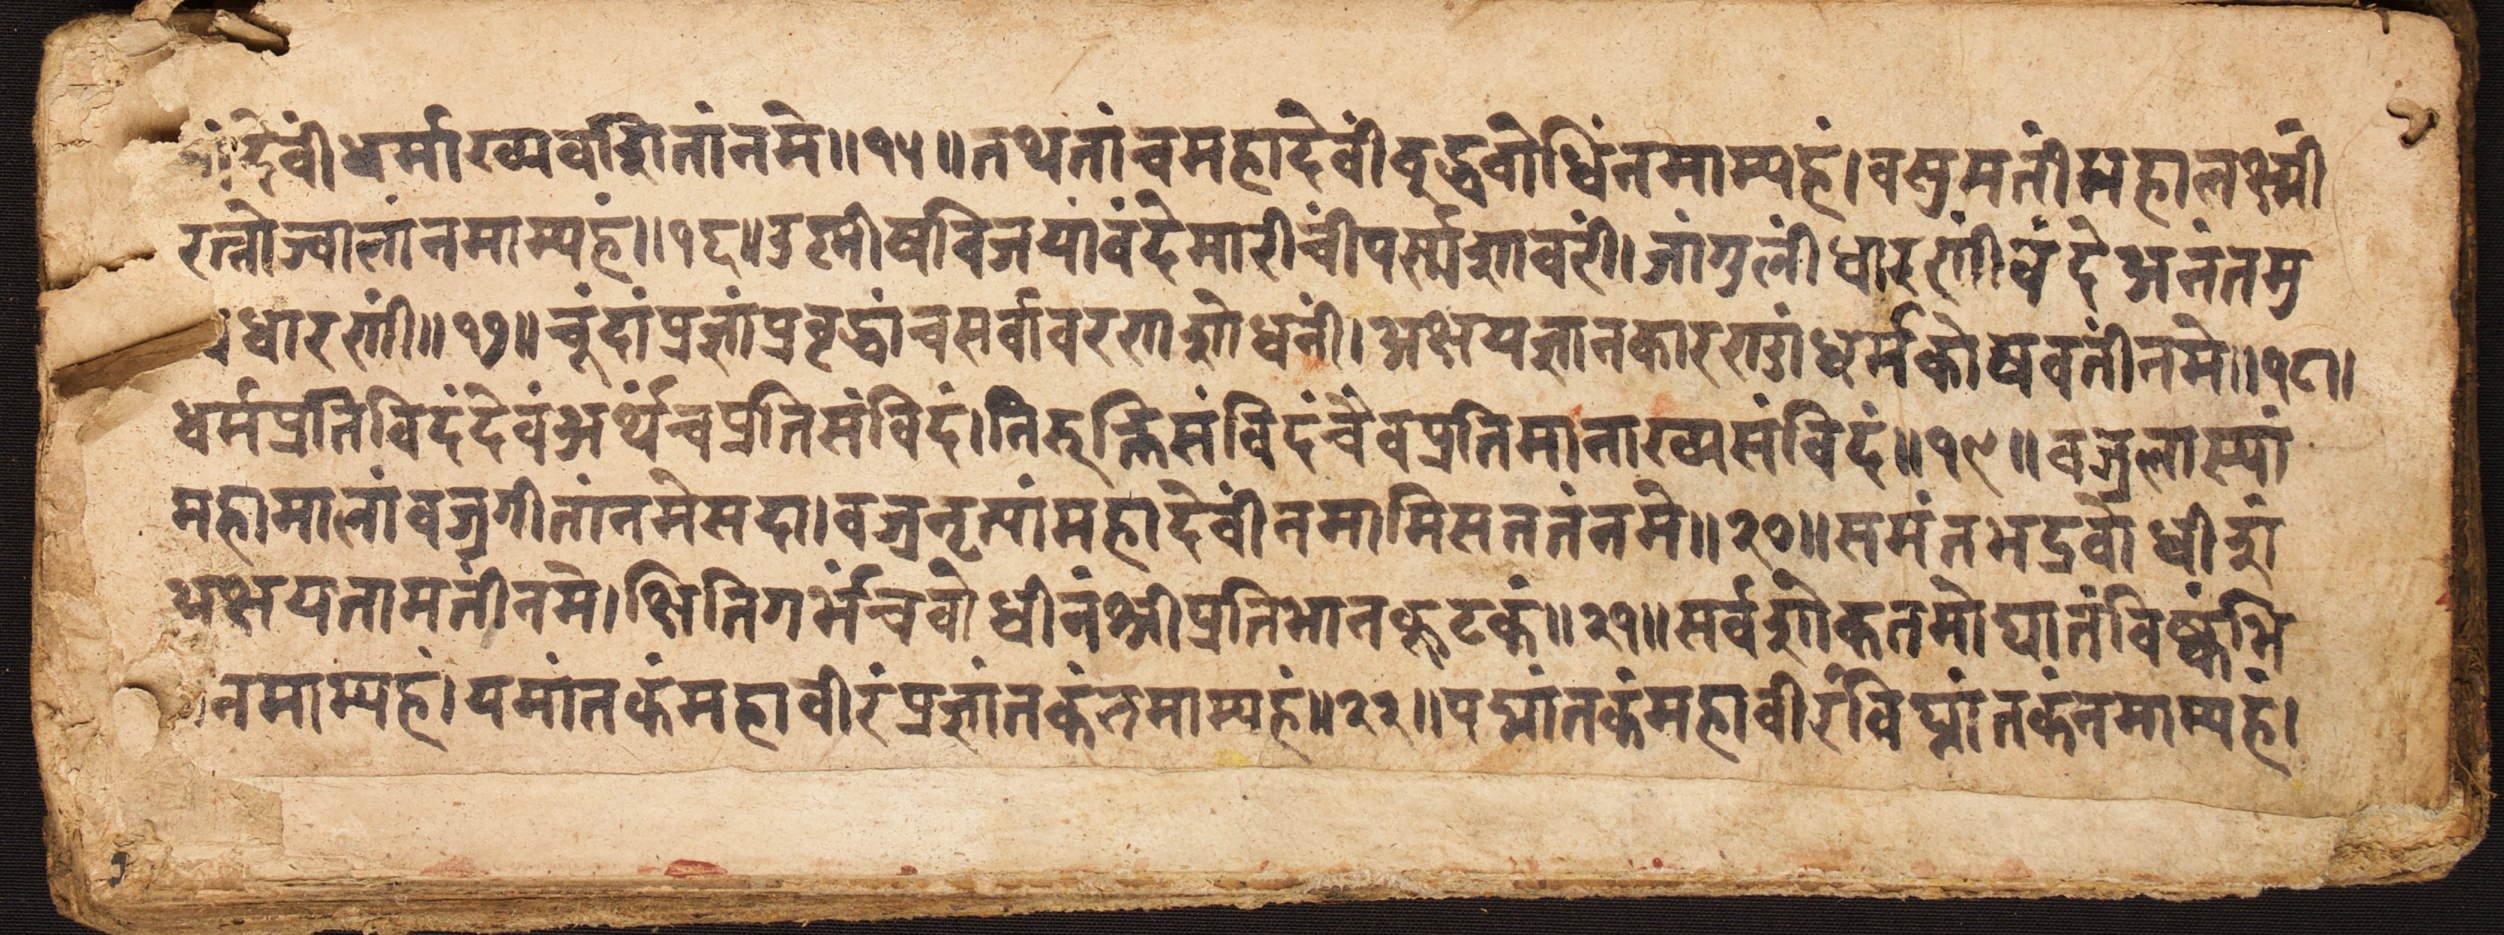 यां देवीं धर्माख्यवशितां नमे॥ १५॥ तथतां च महादेवीं बुद्धबोधिं नमाम्यहं। वसुमतीं महालक्ष्मीं
रत्नोज्वालां नमाम्यहं॥ १६॥ उष्नीषविजयां वंदे मारीचीं पर्स्मशावरीं। जांगुलीं धारणीं वंदे अनंतमु
धारणीं॥ १७॥ चूंदां प्रज्ञां प्रवृद्धां च सर्वावरणशोधनीं। अक्षयज्ञानकारण्डां धर्मकोषवतीं नमे॥ १८।
धर्मप्रतिविदं देवं अर्थंच प्रतिसंविदं। निरुक्तिसंविदं चैव प्रतिमानाख्यसंविदं॥ १९॥ वज्रलास्यां
महामालां वज्रगीतां नमे सदा। वज्रनृत्यां महादेवीं नमामि सततं नमे॥ २०॥ समंतभद्रबोधीशं
अक्षयतामतीं नमे। क्षितिगर्भंच बोधीनं श्रीप्रतिभानकूटकं॥ २१॥ सर्वशोकतमोद्यातं विष्कंभि
नमाम्यहं। यमांतकं महावीरं प्रज्ञांतकं नमाम्यहं॥ २२॥ पद्मांतकं महावीरं विघ्नांतकं नमाम्यहं।